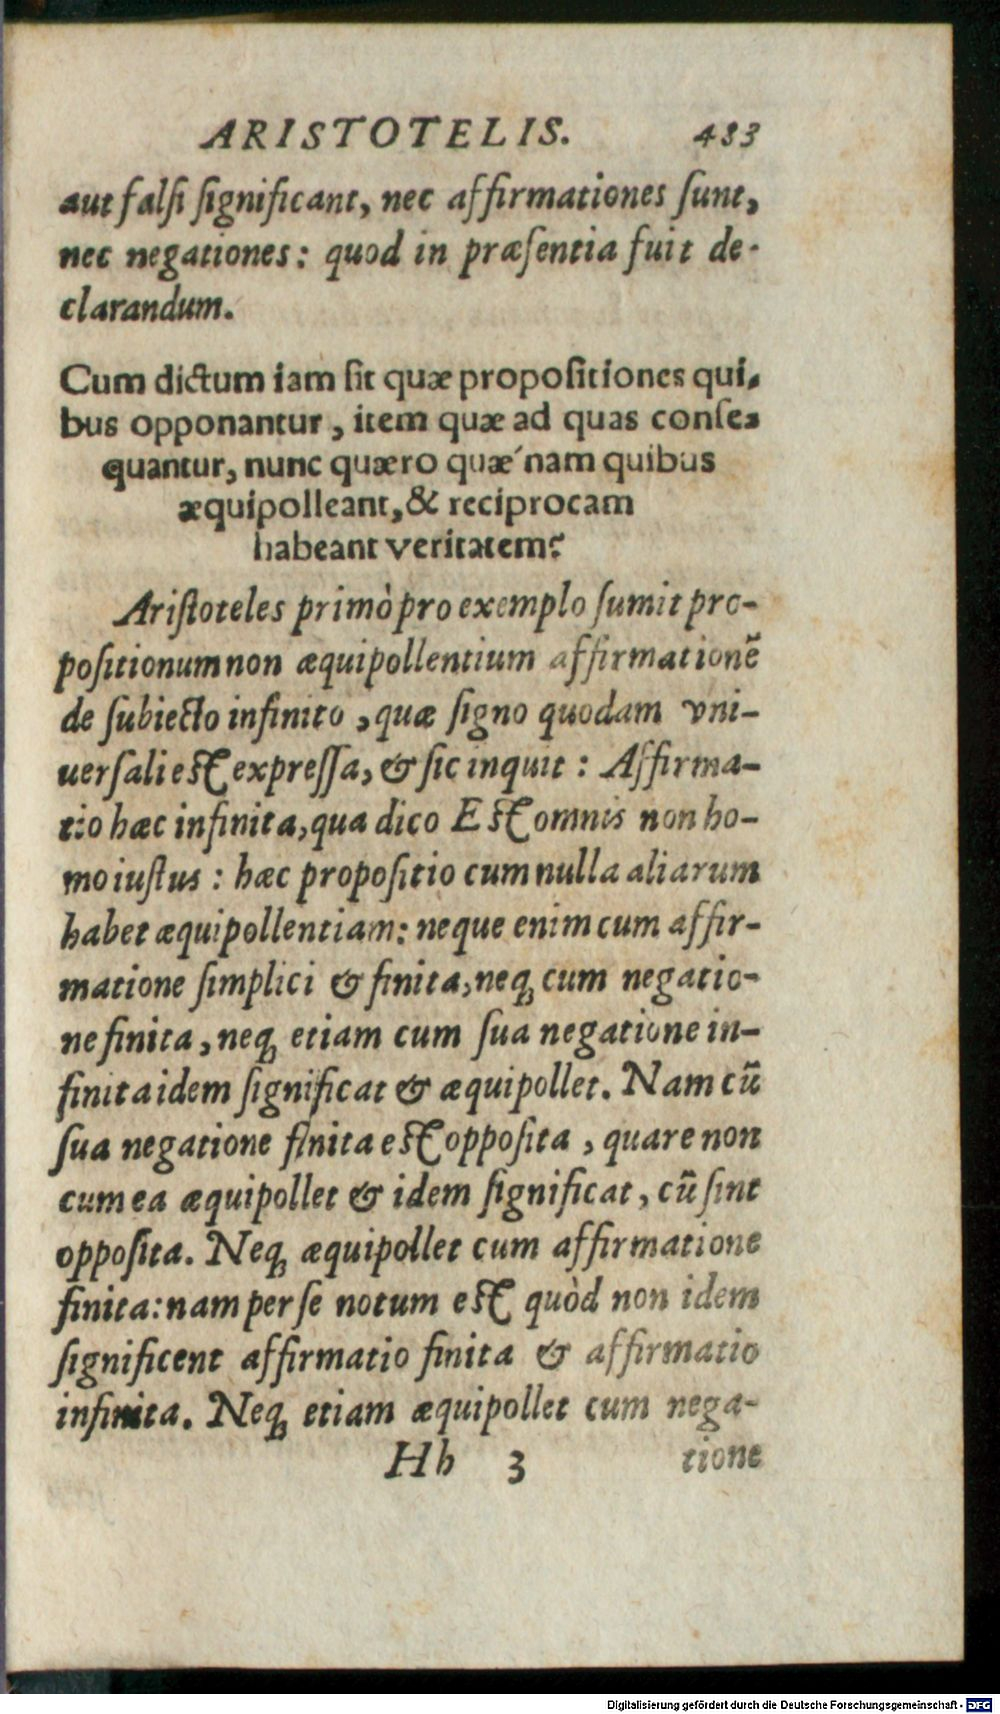 ARISTOTELIS. 483
aut falſi ſignificant, nec affirmationes ſunt,
nec negationes: quod in præſentia fuit de-
clarandum.
Cum dictum iam ſit quæ propoſitiones qui-
bus opponantur, item quæ ad quas conſe-
quantur, nunc quæro quæ´nam quibus
æquipolleant, & reciprocam
habeant veritatem?
Ariſtoteles primò pro exemplo ſumit pro-
poſitionum non æquipollentium affirmationē
de ſubiecto infinito, quæ ſigno quodam vni-
uerſali eſt expreſſa, & ſic inquit: Affirma-
tio hæc infinita, qua dico Eſt omnis non ho-
mo iuſtus: hæc propoſitio cum nulla aliarum
habet æquipollentiam: neque enim cum affir-
matione ſimplici & finita, neq; cum negatio-
ne finita, neq; etiam cum ſua negatione in-
finita idem ſignificat & æquipollet. Nam cū
ſua negatione finita eſt oppoſita, quare non
cum ea æquipollet & idem ſignificat, cū ſint
oppoſita. Neq; æquipollet cum affirmatione
finita: nam per ſe notum eſt quòd non idem
ſignificent affirmatio finita & affirmatio
infinita. Neq; etiam æquipollet cum nega-
Hh 3 tione
Digitalisierung gefördert durch die Deutsche Forschungsgemeinschaft - DFG